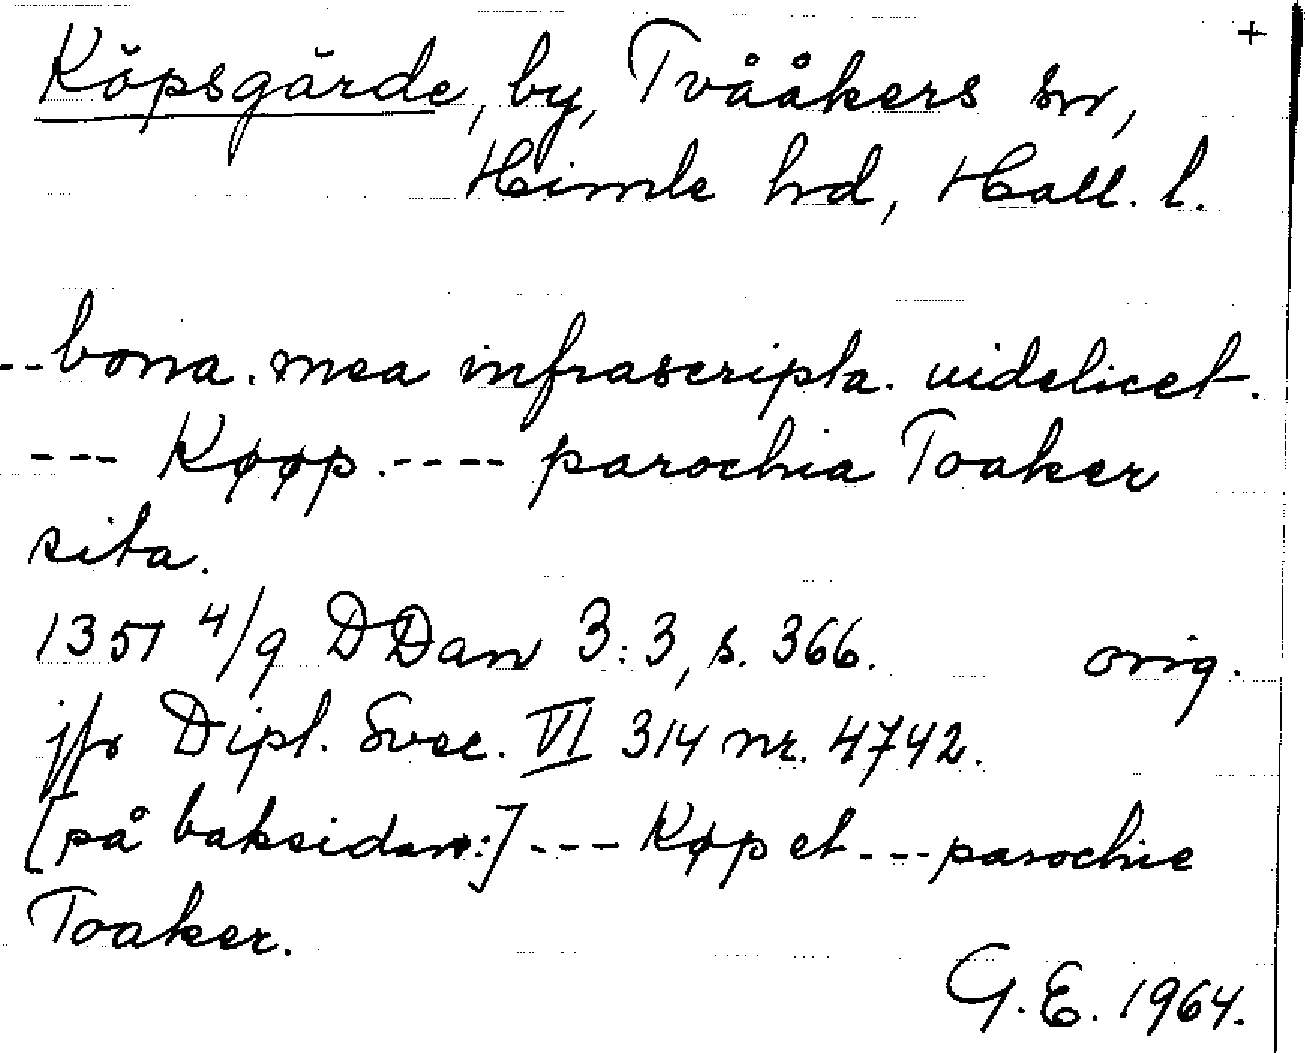 +
Köpsgärde, by, Tvååkers sn,
Himle hd, Hall. l.
--bona. mea infrascripta. uidelicet.
--- Køøp.---- parochia Toaker
sita.
1351 4/9 DDan 3:3, s. 366. orig.
jfr Dipl. Svec. VI 314 nr. 4742.
[på baksidan:] --- Køp et --- parochie
Toaker.
G.E. 1964.